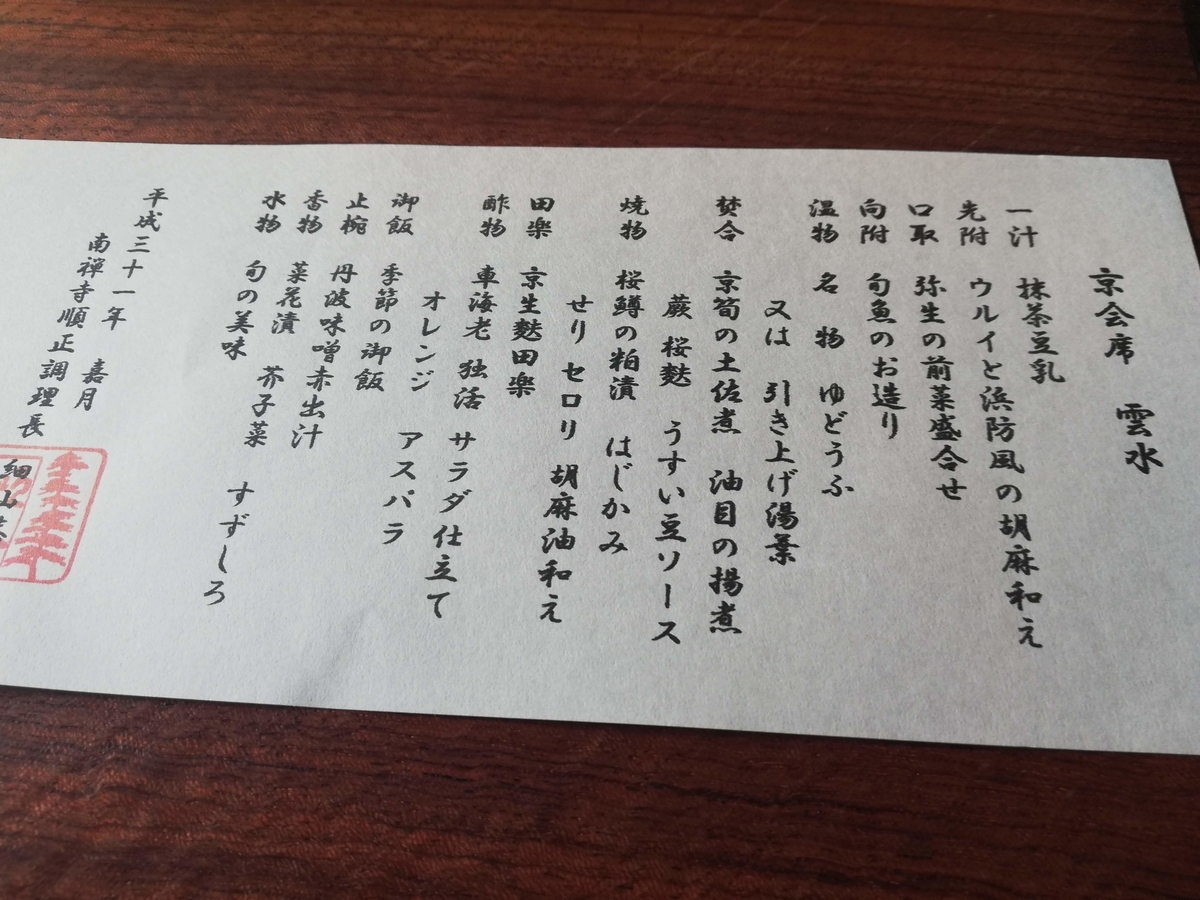 京会席　雲水
一汁　抹茶豆乳
先附　ウルイと浜防風の胡麻和え
口取　弥生の前菜盛合せ
向附　旬魚のお造り
温物　名　物　ゆどうふ
又は　引き上げ湯葉
焚合　京筍の土佐煮　油目の揚煮
蕨　桜麩　うすい豆ソース
焼物　桜鱒の粕漬　はじかみ
せり　セロリ　胡麻油和え
田楽　京生麩田楽
酢物　車海老　独活　サラダ仕立て
オレンジ　アスパラ
御飯　季節の御飯
止椀　丹波味噌赤出汁
香物　菜花漬　芥子菜　すずしろ
水物　旬の美味
平成三十一年　嘉月
南禅寺順正調理長
細山